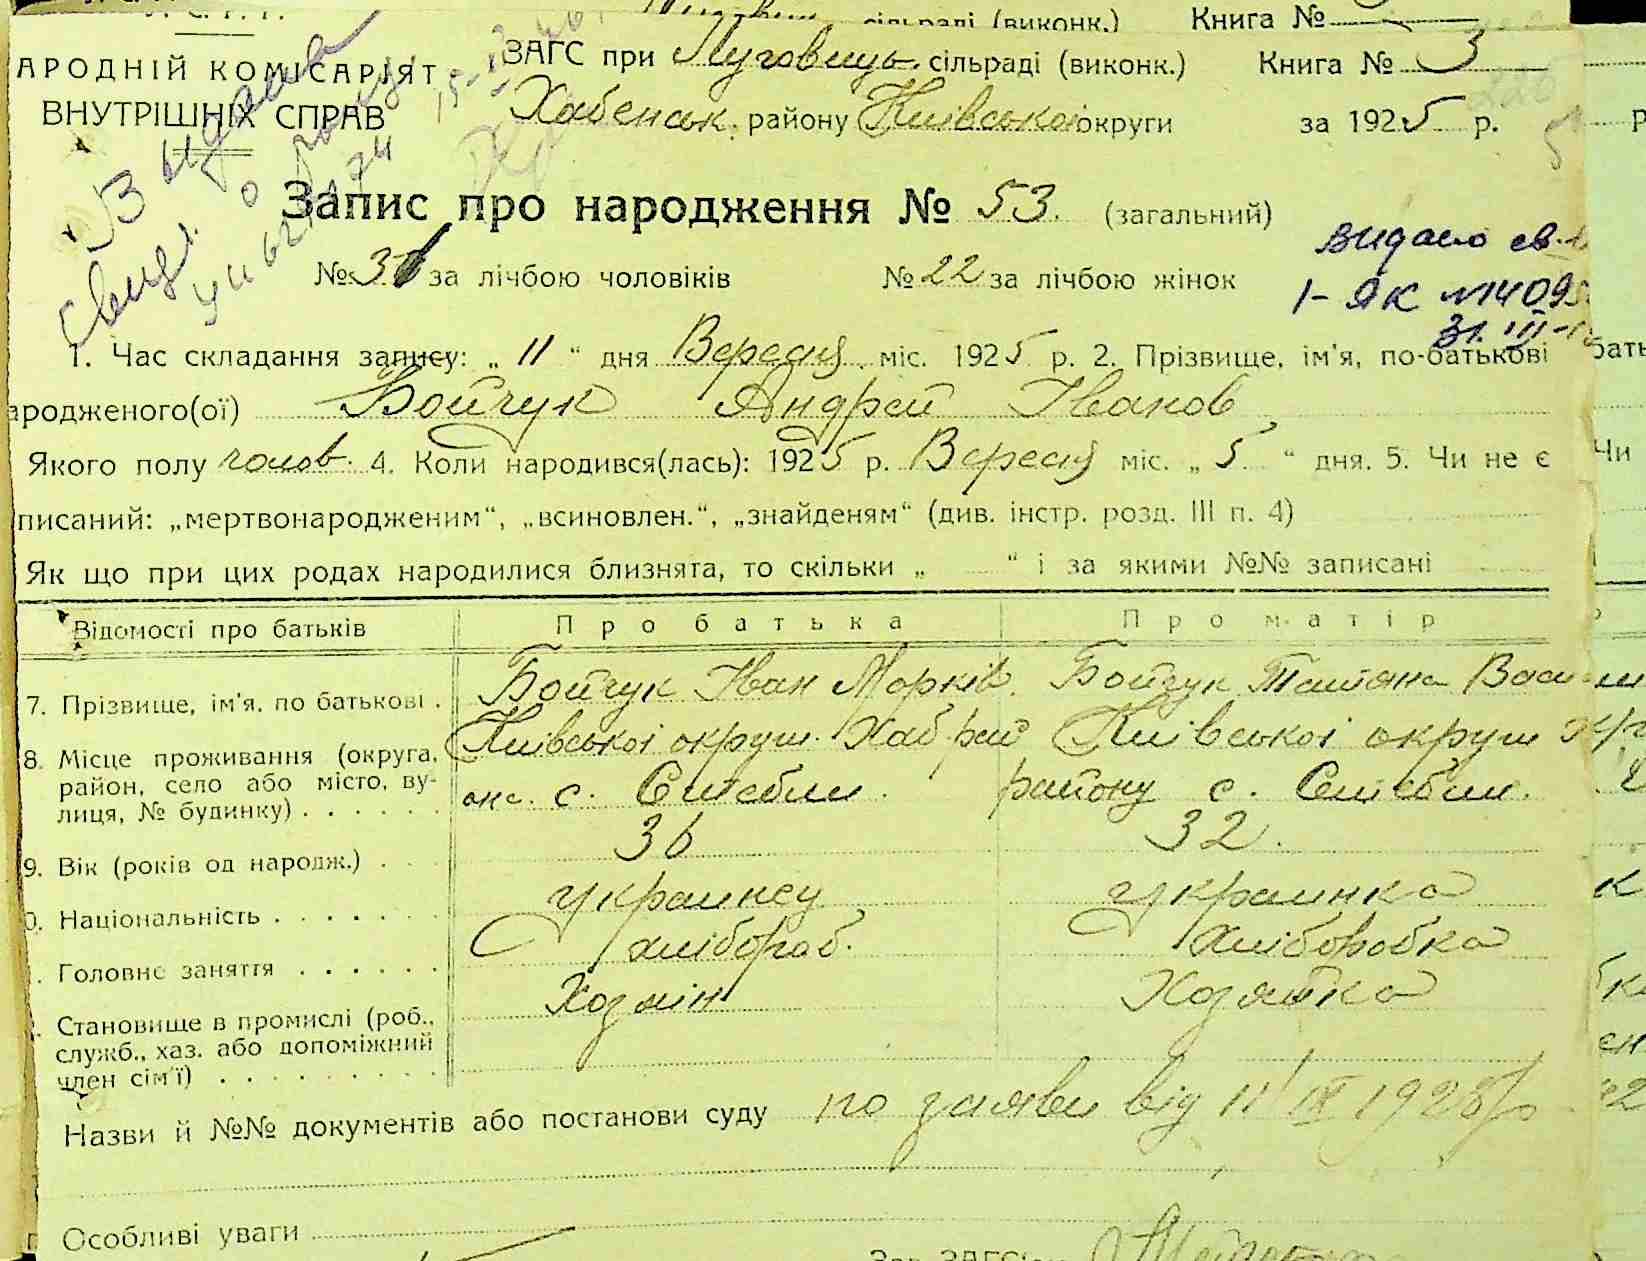 сільраді (виконк.) Книга №
АРОДНІЙ КОМІСАРІЯТ
ВНУТРІШНІХ СПРАВ
ЗАГС при Луговиць. сільраді (виконк.) Книга № 3
Хабенськ. району Київської округи за 1925 р.
Запис про народження № 53. (загальний)
№ 31 за лічбою чоловіків № 22 за лічбою жінок
видано св.
1-ЯК №1409
31. III
1. Час складання запису: „ 11 “ дня Вересня міс. 1925 р. 2. Прізвище, ім'я, по-батькові
ародженого(ої) Бойчук Андрей Іванов
Якого полу чолов. 4. Коли народився(лась): 1925 р. Вересня міс. „ 5 “ дня. 5. Чи не є
писаний: „мертвонародженим“, „всиновлен.“, „знайденям“ (див. інстр. розд. III п. 4)
Як що при цих родах народилися близнята, то скільки „ “ і за якими №№ записані
Відомості про батьків Про батька Про матір
7. Прізвище, ім'я, по батькові . Бойчук Іван Марків. Бойчук Татяна Васи
8. Місце проживання (округа, район, село або місто, вулиця, № будинку) . . . . . . Київської округи. Хаб. рай Київської округи
с. району с.
9. Вік (років од народж.) . . 36 32.
0. Національність . . . . . . . украинец украинка
. Головне заняття . . . . . . хлібороб. хліборобка
. Становище в промислі (роб., Хозяін Хозяйка
служб., хаз. або допоміжний
член сім'ї) . . . . . . . . .
Назви й №№ документів або постанови суду по заяви від 11/IX 1925 р
Особливі уваги